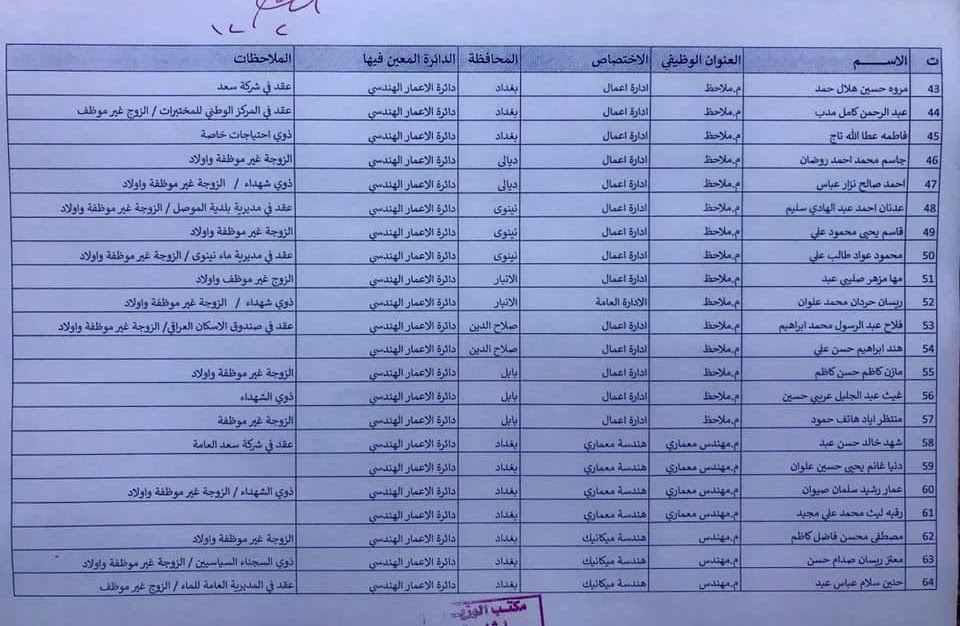 ١٢ ٢
ت الاســـم العنوان الوظيفي الاختصاص المحافظة الدائرة المعين فيها الملاحظات
43 مروه حسين هلال حمد م.ملاحظ ادارة اعمال بغداد دائرة الاعمار الهندسي عقد في شركة سعد
44 عبد الرحمن كامل مدب م.ملاحظ ادارة اعمال بغداد دائرة الاعمار الهندسي عقد في المركز الوطني للمختبرات / الزوج غير موظف
45 فاطمه عطا الله تاج م.ملاحظ ادارة اعمال بغداد دائرة الاعمار الهندسي ذوي احتياجات خاصة
46 جاسم محمد احمد روضان م.ملاحظ ادارة اعمال ديالى دائرة الاعمار الهندسي الزوجة غير موظفة واولاد
47 احمد صالح نزار عباس م.ملاحظ ادارة اعمال ديالى دائرة الاعمار الهندسي ذوي شهداء / الزوجة غير موظفة واولاد
48 عدنان احمد عبد الهادي سليم م.ملاحظ ادارة اعمال نينوى دائرة الاعمار الهندسي عقد في مديرية بلدية الموصل / الزوجة غير موظفة واولاد
49 قاسم يحيى محمود علي م.ملاحظ ادارة اعمال نينوى دائرة الاعمار الهندسي الزوجة غير موظفة واولاد
50 محمود عواد طالب علي م.ملاحظ ادارة اعمال نينوى دائرة الاعمار الهندسي عقد في مديرية ماء نينوى / الزوجة غير موظفة واولاد
51 مها مزهر صليبي عبد م.ملاحظ ادارة اعمال الانبار دائرة الاعمار الهندسي الزوج غير موظف واولاد
52 ريسان حردان محمد علوان م.ملاحظ الادارة العامة الانبار دائرة الاعمار الهندسي ذوي شهداء / الزوجة غير موظفة واولاد
53 فلاح عبد الرسول محمد ابراهيم م.ملاحظ ادارة اعمال صلاح الدين دائرة الاعمار الهندسي عقد في صندوق الاسكان العراقي/ الزوجة غير موظفة واولاد
54 هند ابراهيم حسن علي م.ملاحظ ادارة اعمال صلاح الدين دائرة الاعمار الهندسي
55 مازن كاظم حسن كاظم م.ملاحظ ادارة اعمال بابل دائرة الاعمار الهندسي الزوجة غير موظفة واولاد
56 غيث عبد الجليل عريبي حسين م.ملاحظ ادارة اعمال بابل دائرة الاعمار الهندسي ذوي الشهداء
57 منتظر اياد هاتف حمود م.ملاحظ ادارة اعمال بابل دائرة الاعمار الهندسي الزوجة غير موظفة
58 شهد خالد حسن عبد م.مهندس معماري هندسة معماري بغداد دائرة الاعمار الهندسي عقد في شركة سعد العامة
59 دنيا غانم يحيى حسين علوان م.مهندس معماري هندسة معماري بغداد دائرة الاعمار الهندسي
60 عمار رشيد سلمان صيوان م.مهندس معماري هندسة معماري بغداد دائرة الاعمار الهندسي ذوي الشهداء / الزوجة غير موظفة واولاد
61 رقيه ليث محمد علي مجيد م.مهندس معماري هندسة معماري بغداد دائرة الاعمار الهندسي
62 مصطفى محسن فاضل كاظم م.مهندس هندسة ميكانيك بغداد دائرة الاعمار الهندسي الزوجة غير موظفة واولاد
63 معتز ريسان صدام حسن م.مهندس هندسة ميكانيك بغداد دائرة الاعمار الهندسي ذوي السجناء السياسيين / الزوجة غير موظفة واولاد
64 حنين سلام عباس عبد م.مهندس هندسة ميكانيك بغداد دائرة الاعمار الهندسي عقد في المديرية العامة للماء / الزوج غير موظف
مكتب